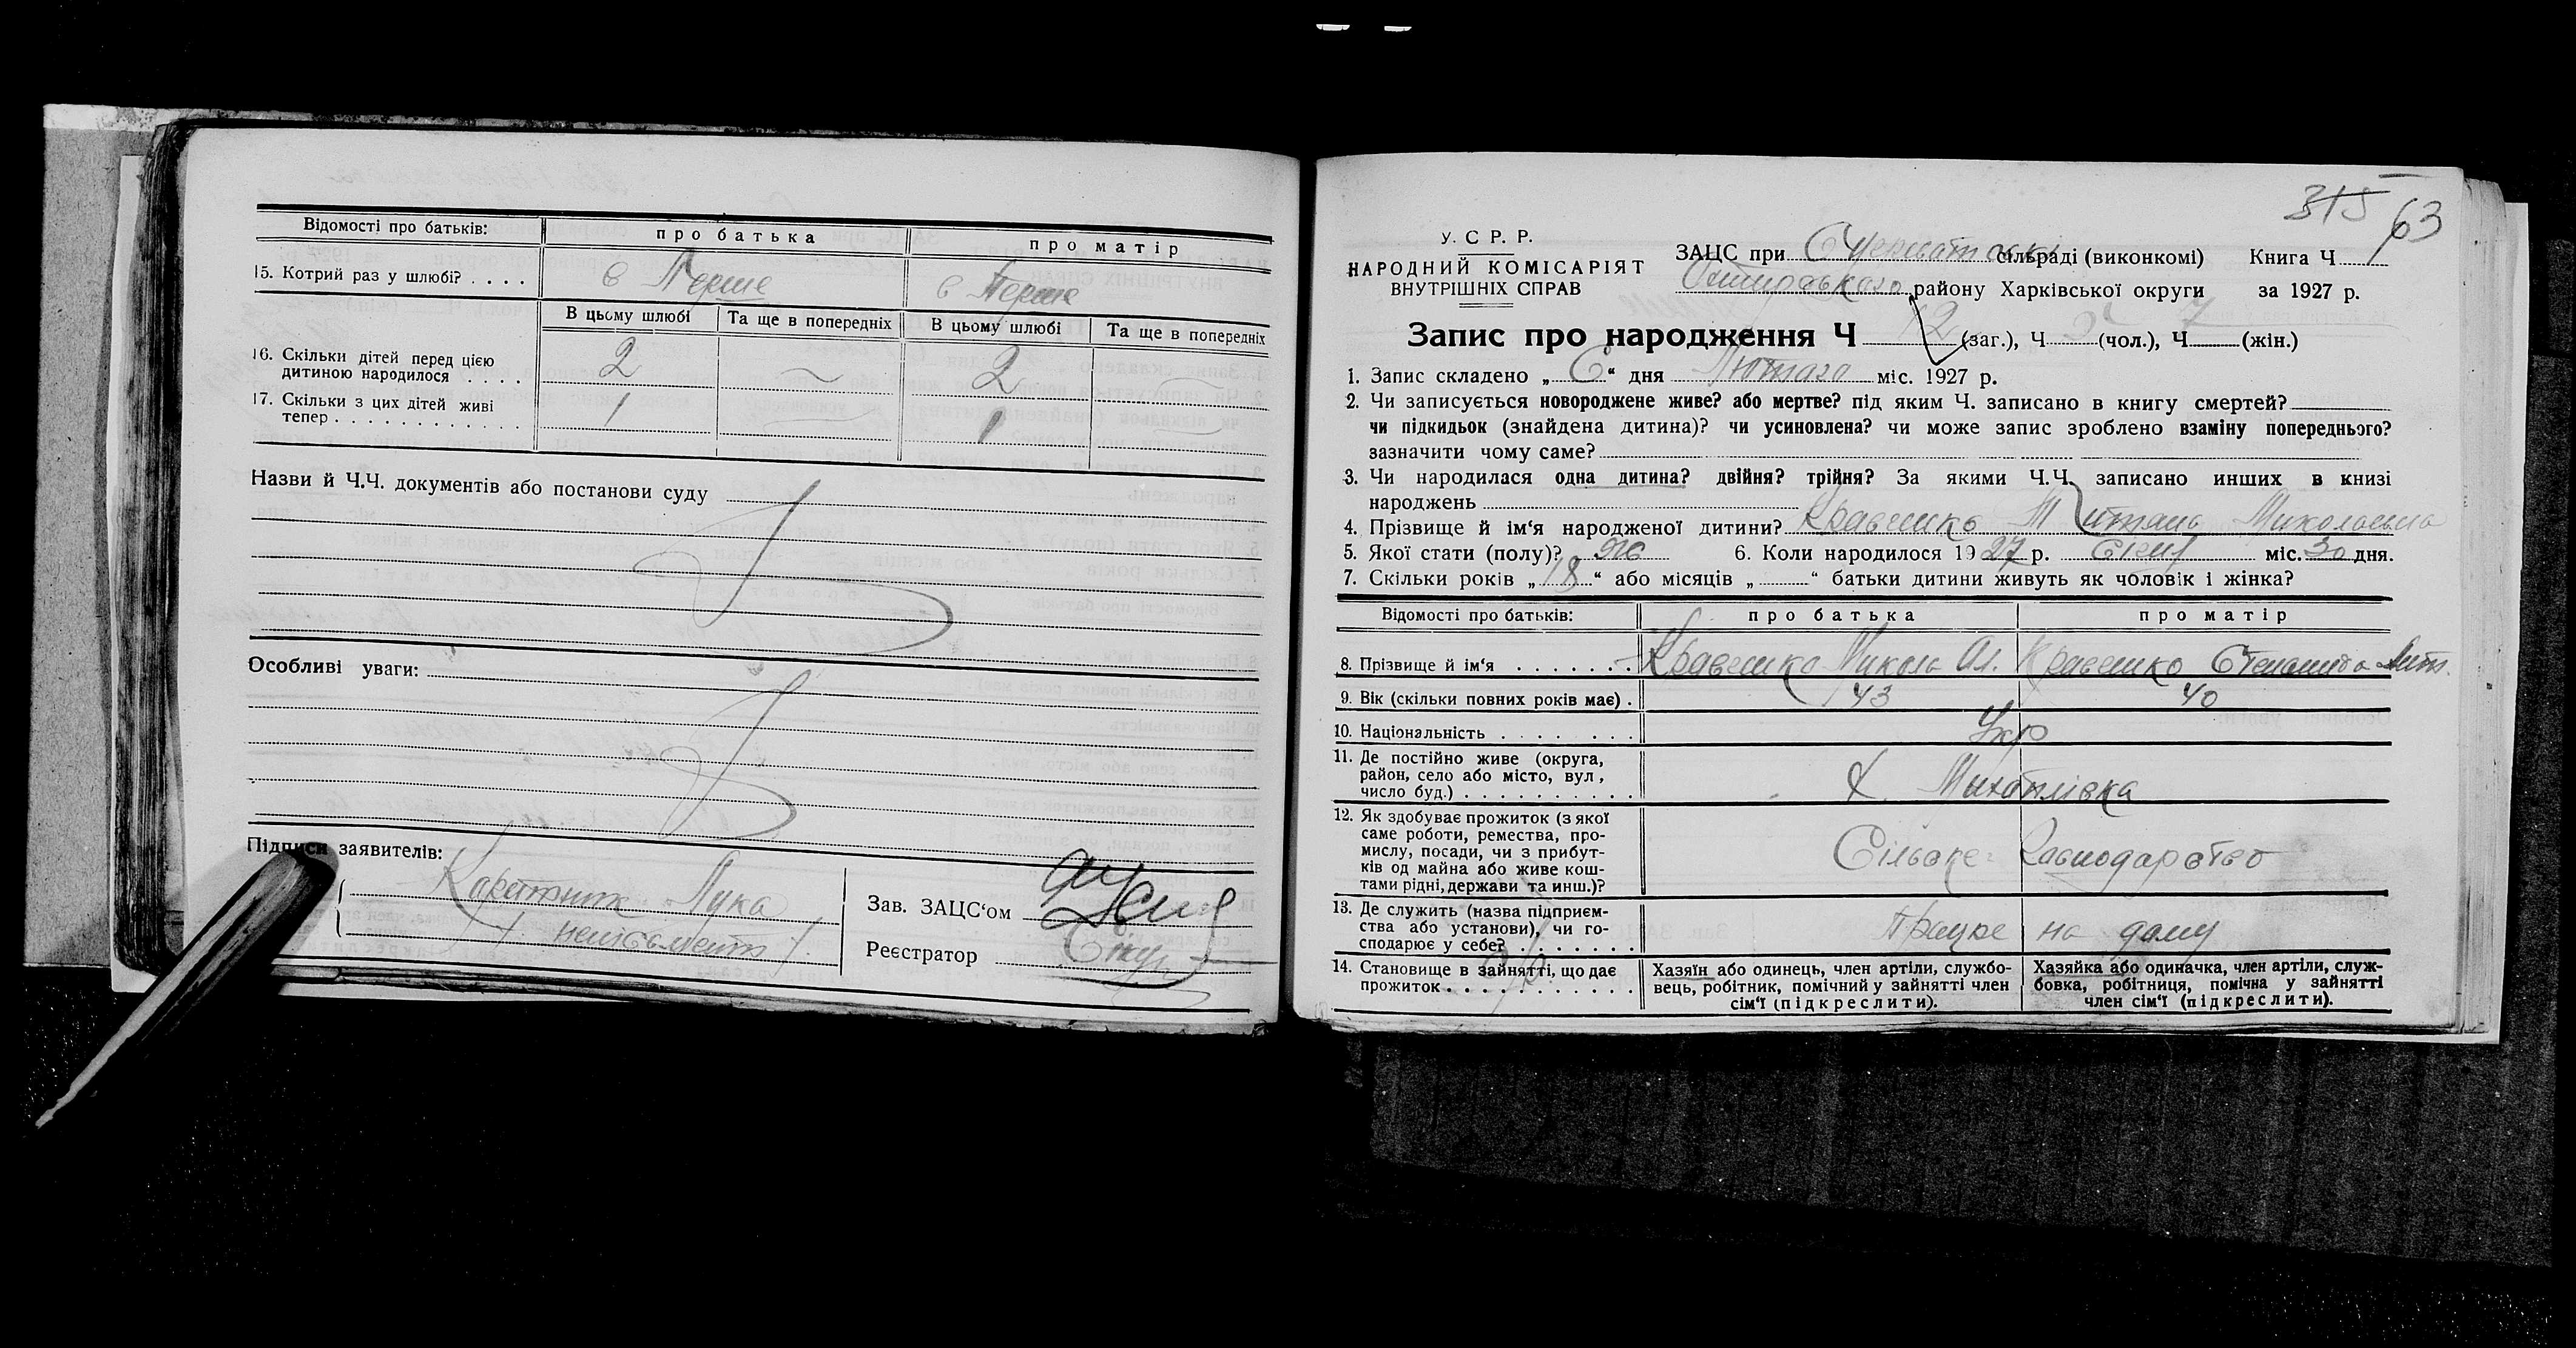 Відомості про батьків: про батька про матір
15. Котрий раз у шлюбі? . . . . в Перше в Перше
В цьому шлюбі Та ще в попередніх В цьому шлюбі Та ще в попередніх
16. Скільки дітей перед цією
дитиною народилося . . . . 2 — 2 —
17. Скільки з цих дітей живі
тепер . . . . . . . . . . . . 1 — 1 —
Назви й Ч.Ч. документів або постанови суду
Особливі уваги:
Підписи заявителів:
Лука
Зав. ЗАЦС‘ом
Реєстратор
315 63
У. С Р. Р.
НАРОДНИЙ КОМІСАРІЯТ
ВНУТРІШНІХ СПРАВ
ЗАЦС при сільраді (виконкомі) Книга Ч
району Харківської округи за 1927 р.
Запис про народження Ч 12 (заг.), Ч (чол.), Ч (жін.)
1. Запис складено „ 6 “ дня Лютого міс. 1927 р.
2. Чи записується новороджене живе? або мертве? під яким Ч. записано в книгу смертей?
чи підкидьок (знайдена дитина)? чи усиновлена? чи може запис зроблено взаміну попереднього?
зазначити чому саме?
3. Чи народилася одна дитина? двійня? трійня? За якими Ч.Ч. записано инших в книзі
народжень
4. Прізвище й ім‘я народженої дитини? Кравченко Митяна Миколаевна
5. Якої стати (полу)? жс 6. Коли народилося 1927 р. Січня міс. 30 дня.
7. Скільки років „ 18 “ або місяців „ “ батьки дитини живуть як чоловік і жінка?
Відомості про батьків: про батька про матір
8. Прізвище й ім‘я . . . . . . . Кравченко Микола Ол. Кравченко Степанида Ант.
9. Вік (скільки повних років має) . 43 40
10. Національність . . . . . . . Укр
11. Де постійно живе (округа,
район, село або місто, вул,
число буд.) . . . . . . . . . . Х. Михайлівка
12. Як здобуває прожиток (з якої
саме роботи, ремества, про-
мислу, посади, чи з прибут-
ків од майна або живе кош-
тами рідні, держави та инш.)? Сільське Господарство
13. Де служить (назва підприєм-
ства або установи), чи го-
сподарює у себе? . . . . . . . Працює на дому
14. Становище в зайнятті, що дає
прожиток . . . . . . . . . . .
Хазяїн або одинець, член артіли, службо-
вець, робітник, помічний у зайнятті член
сім‘ї (підкреслити).
Хазяйка або одиначка, член артіли, служ-
бовка, робітниця, помічна у зайнятті
член сім‘ї (підкреслити).